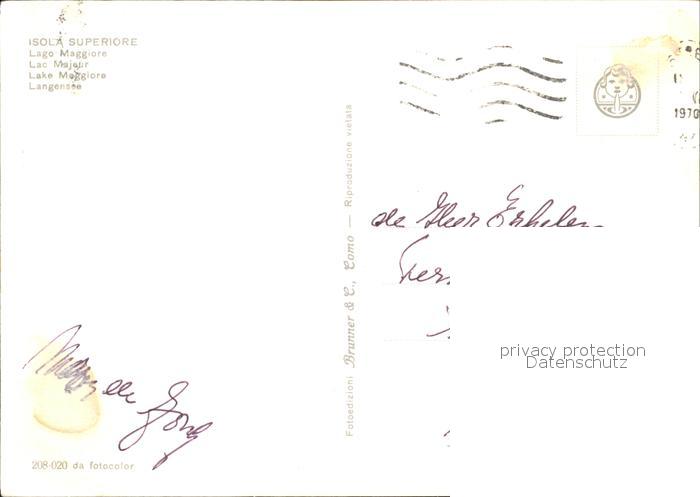 ISOLA SUPERIORE
Lago Maggiore
Lac Majeur
Lake Maggiore
Langensee
1970
Fotoedizioni Brunner & C., Como — Riproduzione vietata
de Heer
privacy protection
Datenschutz
de Jong
208-020 da fotocolor